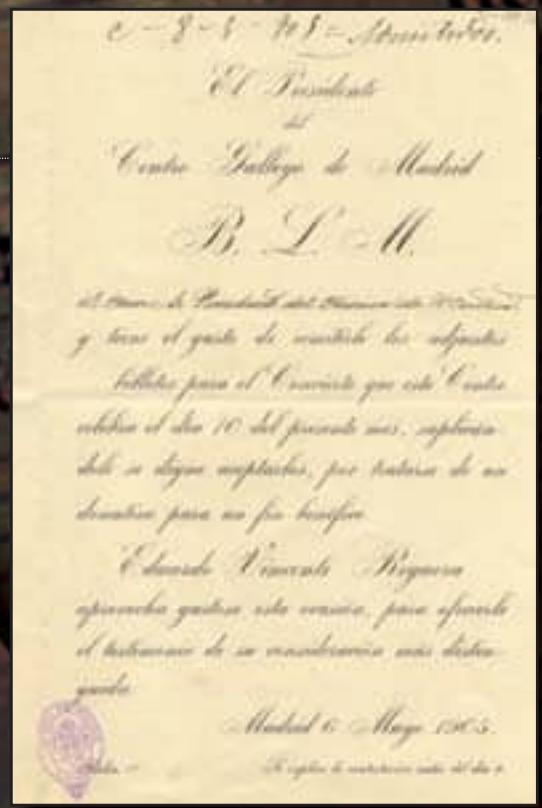 El Presidente
del
Centro Gallego de Madrid
B. L. M.
y tiene el gusto de remitirle los adjuntos
billetes para el Concierto que este Centro
celebra el día 10 del presente mes, suplicán-
dole se digne aceptarlos, por tratarse de un
donativo para un fin benéfico
Eduardo Vincenti Reguera
aprovecha gustoso esta ocasión, para ofrecerle
el testimonio de su consideración más distin-
guida
Madrid 6 Mayo 1905.